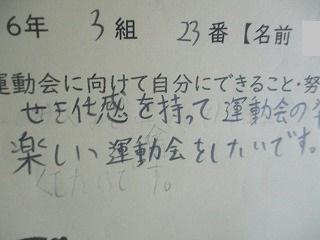 6年 3組 23番【名前
運動会に向けて自分にできること・努
せを仕感を持って運動会の
楽しい運動会をしたいです。
くしたいです。